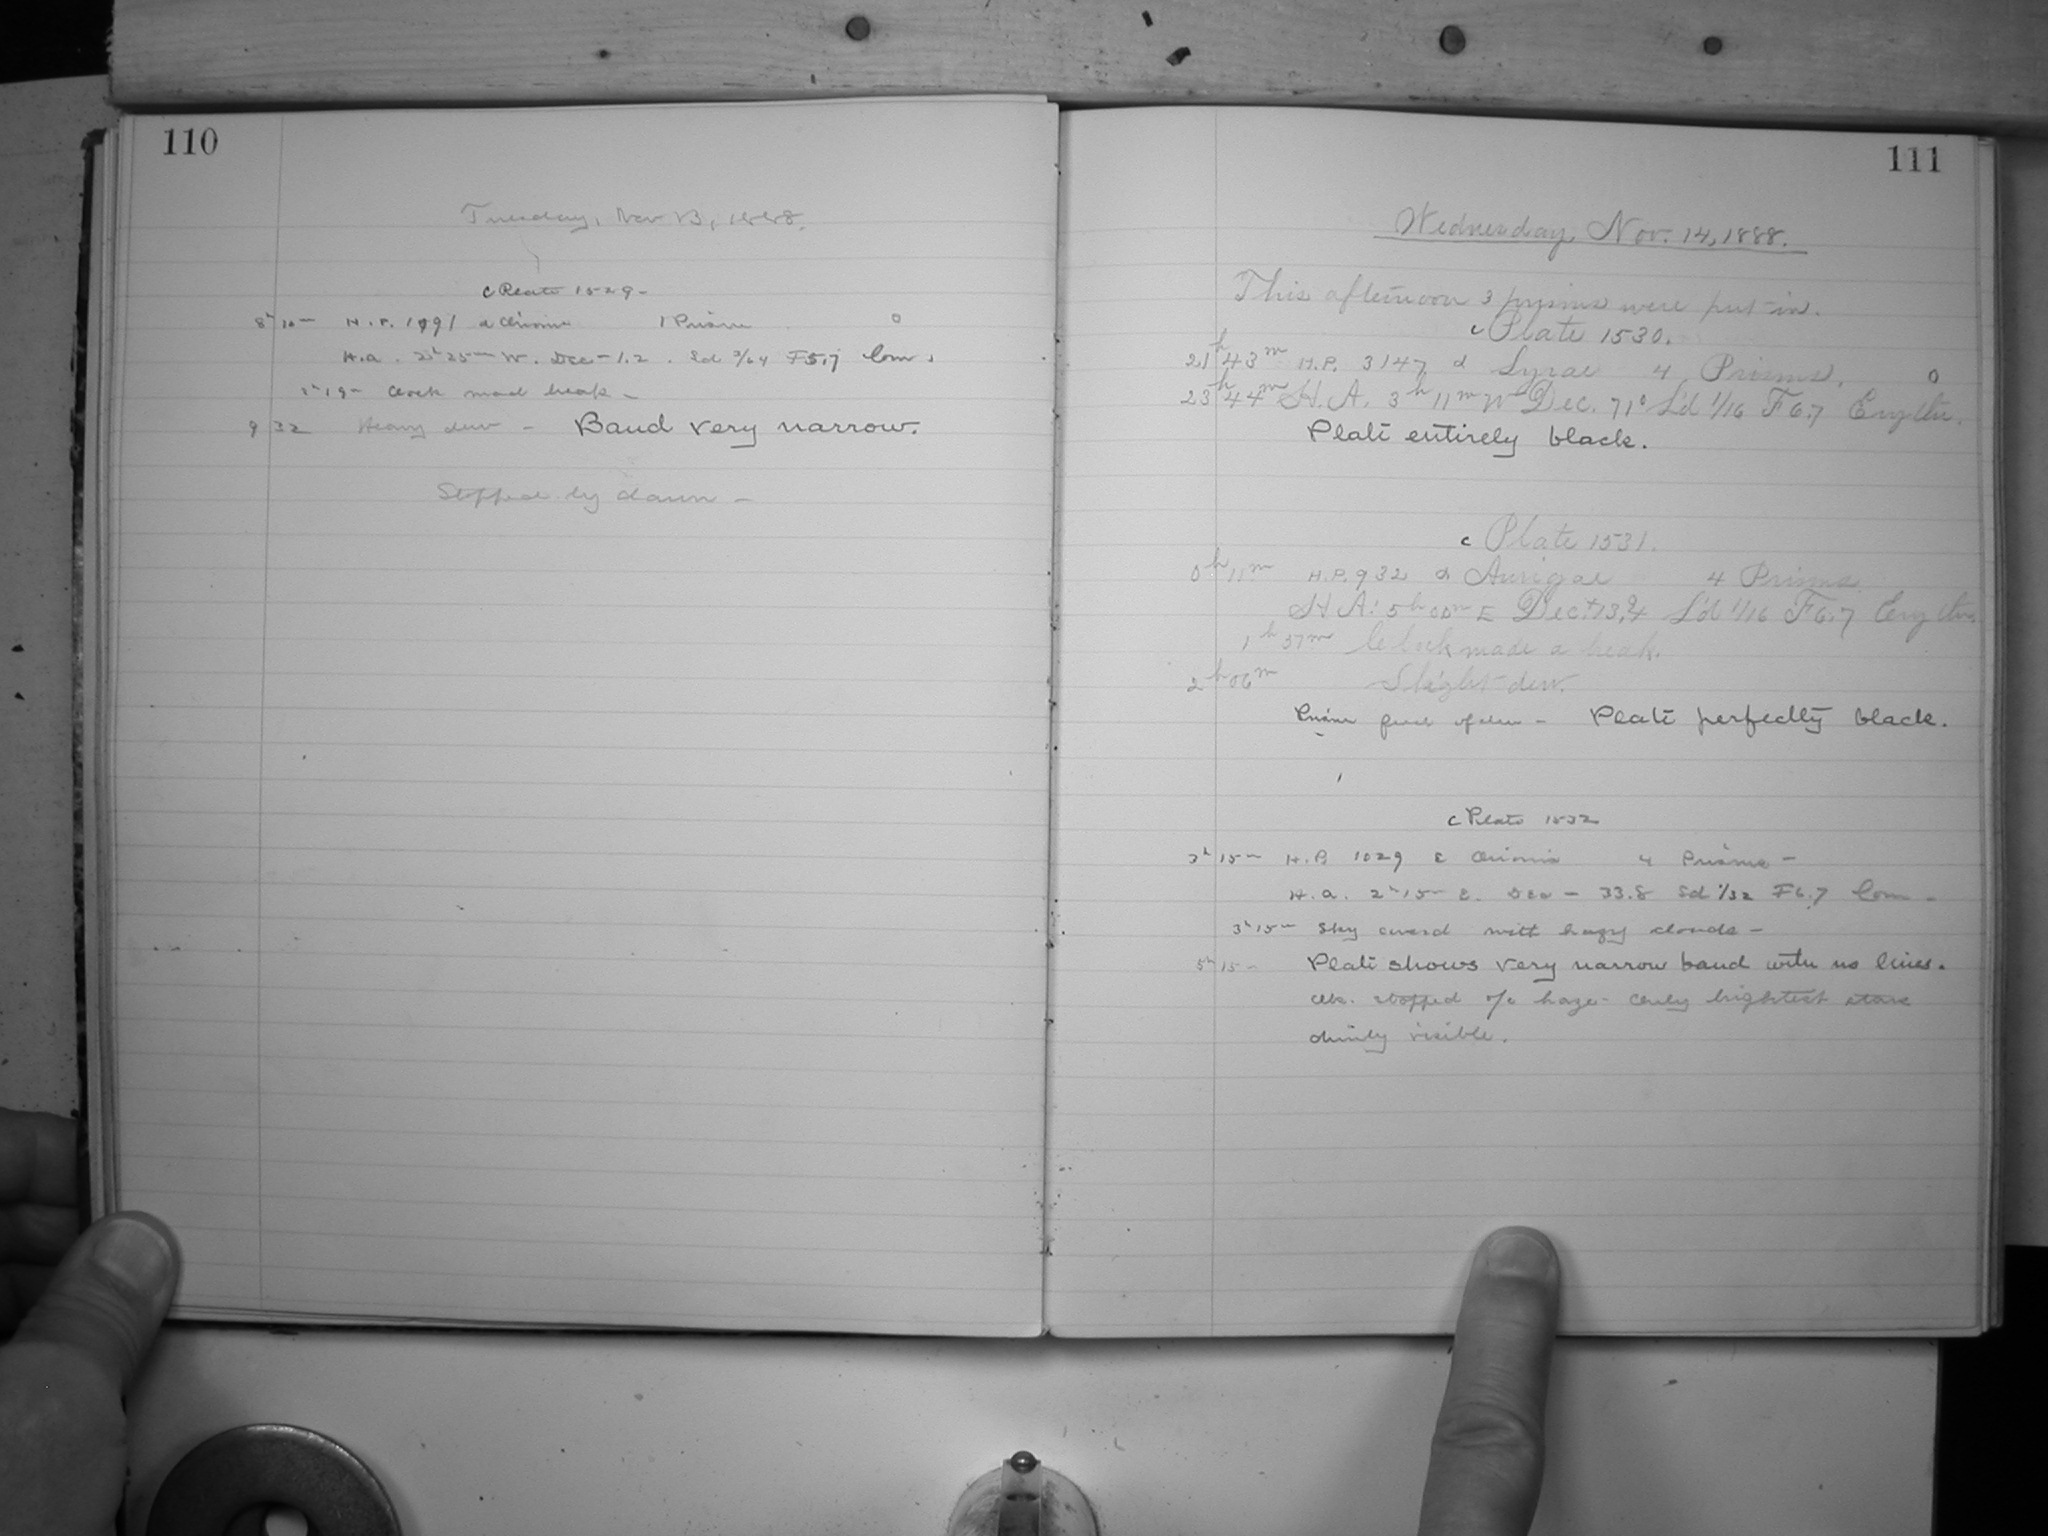 110
Tuesday, Nov 13, 1888.
c Plate 1529 -
8h 10m H.P. 1091 α Orionis 1 Prism 0
H.A. 2h 25m W. Dec - 1.2. Sd 3/64 F 5.7 Com.
Clock made break -
9 32 Heavy dew - Band very narrow.
Stopped by dawn -
111
Wednesday, Nov. 14, 1888.
This afternoon 3 prisms were put in.
c Plate 1530.
21h 43m H.P. 3147 α Lyrae 4 Prisms. 0
23h 44m H.A. 3h 11m W Dec. 71° S'd 1/16 F 6.7 Erythr.
Plate entirely black.
c Plate 1531.
0h 11m H.P. 932 α Aurigae 4 Prisms
H A: 5h 00m E Dec. +73.4 S'd 1/16 F 6.7 Erythr.
1h 37m Clock made a break.
2h 06m Slight dew.
Prism full of dew - Plate perfectly black.
c Plate 1532
3h 15m H.P. 1029 ε Orionis 4 Prisms -
H.A. 2h 15m E. Dec - 33.8 Sd 1/32 F 6.7 Com -
3h 15m Sky covered with hazy clouds -
5h 15m Plate shows very narrow band with no lines.
Obs. stopped a/c haze - only brightest stars
dimly visible.